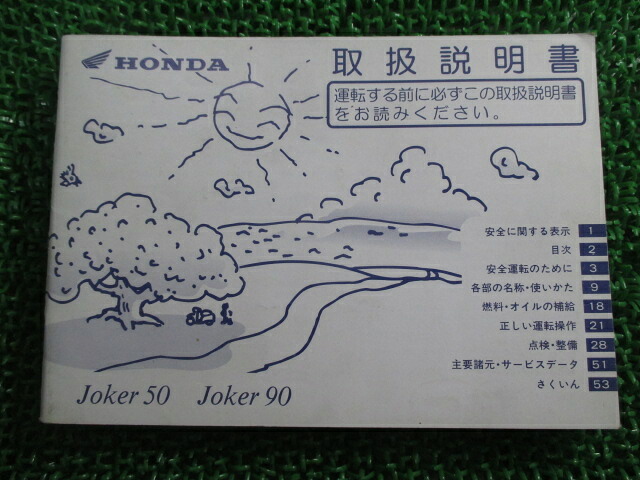 HONDA
取扱説明書
運転する前に必ずこの取扱説明書
をお読みください。
安全に関する表示 1
目次 2
安全運転のために 3
各部の名称・使いかた 9
燃料・オイルの補給 18
正しい運転操作 21
点検・整備 28
主要諸元・サービスデータ 51
さくいん 53
Joker 50 Joker 90